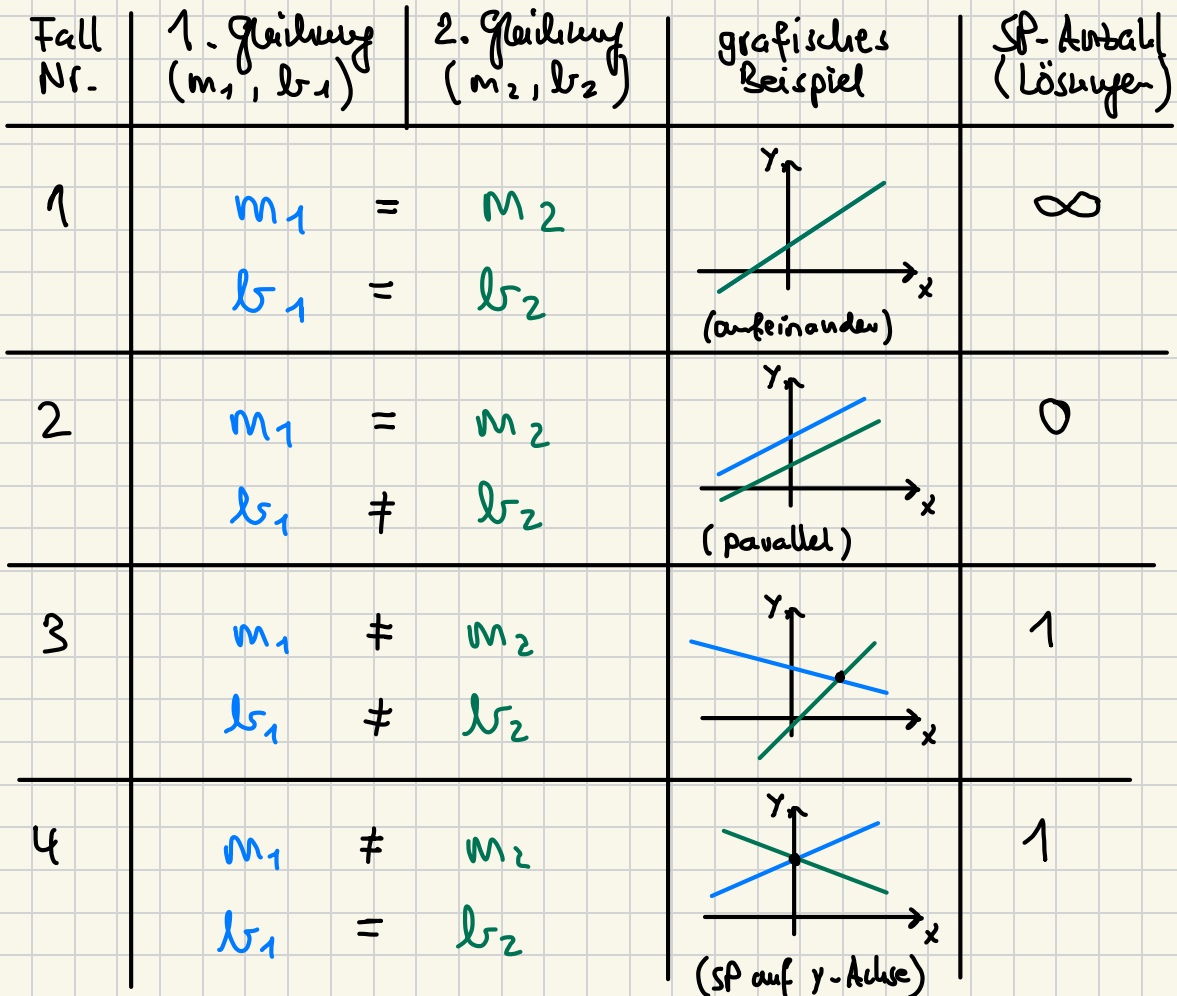 Fall Nr.
1. Gleichung (m₁, b₁)
2. Gleichung (m₂, b₂)
grafisches Beispiel
SP-Anzahl (Lösungen)
1
m₁ = m₂
b₁ = b₂
y
x
(aufeinander)
∞
2
m₁ = m₂
b₁ ≠ b₂
y
x
(parallel)
0
3
m₁ ≠ m₂
b₁ ≠ b₂
y
x
1
4
m₁ ≠ m₂
b₁ = b₂
y
x
(SP auf y-Achse)
1